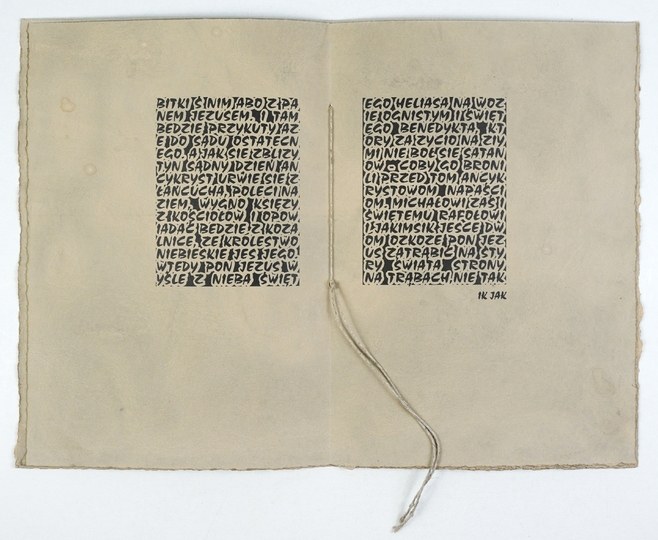 BITKI Ś NIM ABO Z PA
NEM JEZUSEM. I TAM
BEDZIE PRZYKUTY AZ
E DO SĄDU OSTATECN
EGO. A JAK SIE ZBLIZY
TYN SĄDNY DZIEŃ AN
CYKRYST URWIE SIE Z
ŁAŃCUCHA, POLECI NA
ZIEM, WYGNO KSIĘZY
Z KOŚCIOŁÓW I OPOW
IADAĆ BĘDZIE Z KOZA
LNICE, ZE KRÓLESTWO
NIEBIESKIE JES JEGO!
WTEDY PON JEZUS W
YŚLE Z NIEBA ŚWIĘT
EGO HELIASA NA WOZ
IE OGNISTYM I ŚWIĘT
EGO BENEDYKTA, KT
ÓRY ZA ZYCIO NA ZIY
MI NIE BOŁ SIE SATAN
ÓW, COBY GO BRONI
LI PRZED TOM ANCYK
RYSTOWOM NAPAŚCI
OM. MICHAŁOWI ZAŚ I
ŚWIĘTEMU RAFOŁOWI
I JAKIMSIK JESCE DW
OM OZKOZE PON JEZ
US ZATRĄBIĆ NA ŚTY
RY ŚWIATA STRONY
NA TRĄBACH, NIE TAK
IK JAK